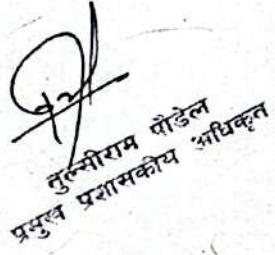 तुल्सीराम पौडेल
प्रमुख प्रशासकीय अधिकृत